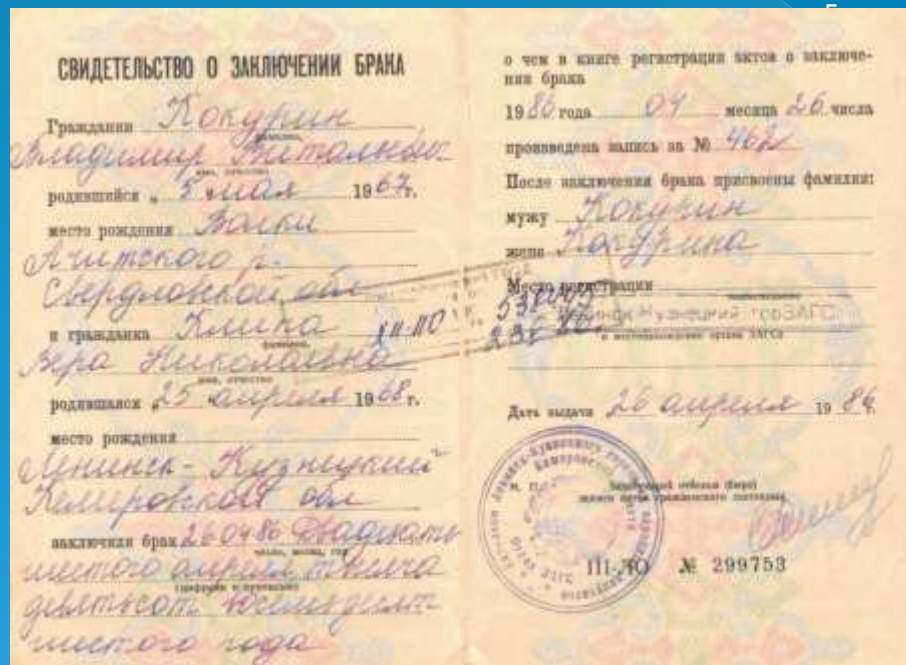 СВИДЕТЕЛЬСТВО О ЗАКЛЮЧЕНИИ БРАКА
Гражданин Кокурин
фамилия,
Владимир Витальевич
имя, отчество
родившийся „ 5 мая 1967г.
место рождения
Ачитского р.
Свердловской обл
и гражданка Клипа
фамилия,
Вера Николаевна
имя, отчество
родившаяся „25 апреля 1968г.
место рождения
Ленинск-Кузнецкий
Кемеровской обл
заключили брак 260486 Двадцать
число, месяц, год
шестого апреля тысяча
(цифрами и прописью)
девятьсот восемьдесят
шестого года
о чем в книге регистрации актов о заключе-
нии брака
1986 года 04 месяца 26 числа
произведена запись за № 462
После заключения брака присвоены фамилии:
мужу Кокурин
жене Кокурина
Место регистрации
наименование
Ленинск-Кузнецкий горЗАГС
и местонахождение органа ЗАГСа
XII-ЛО
Дата выдачи 26 апреля 1986г.
М. П.
Заведующий отделом (бюро)
записи актов гражданского состояния
III-ЛО № 299753